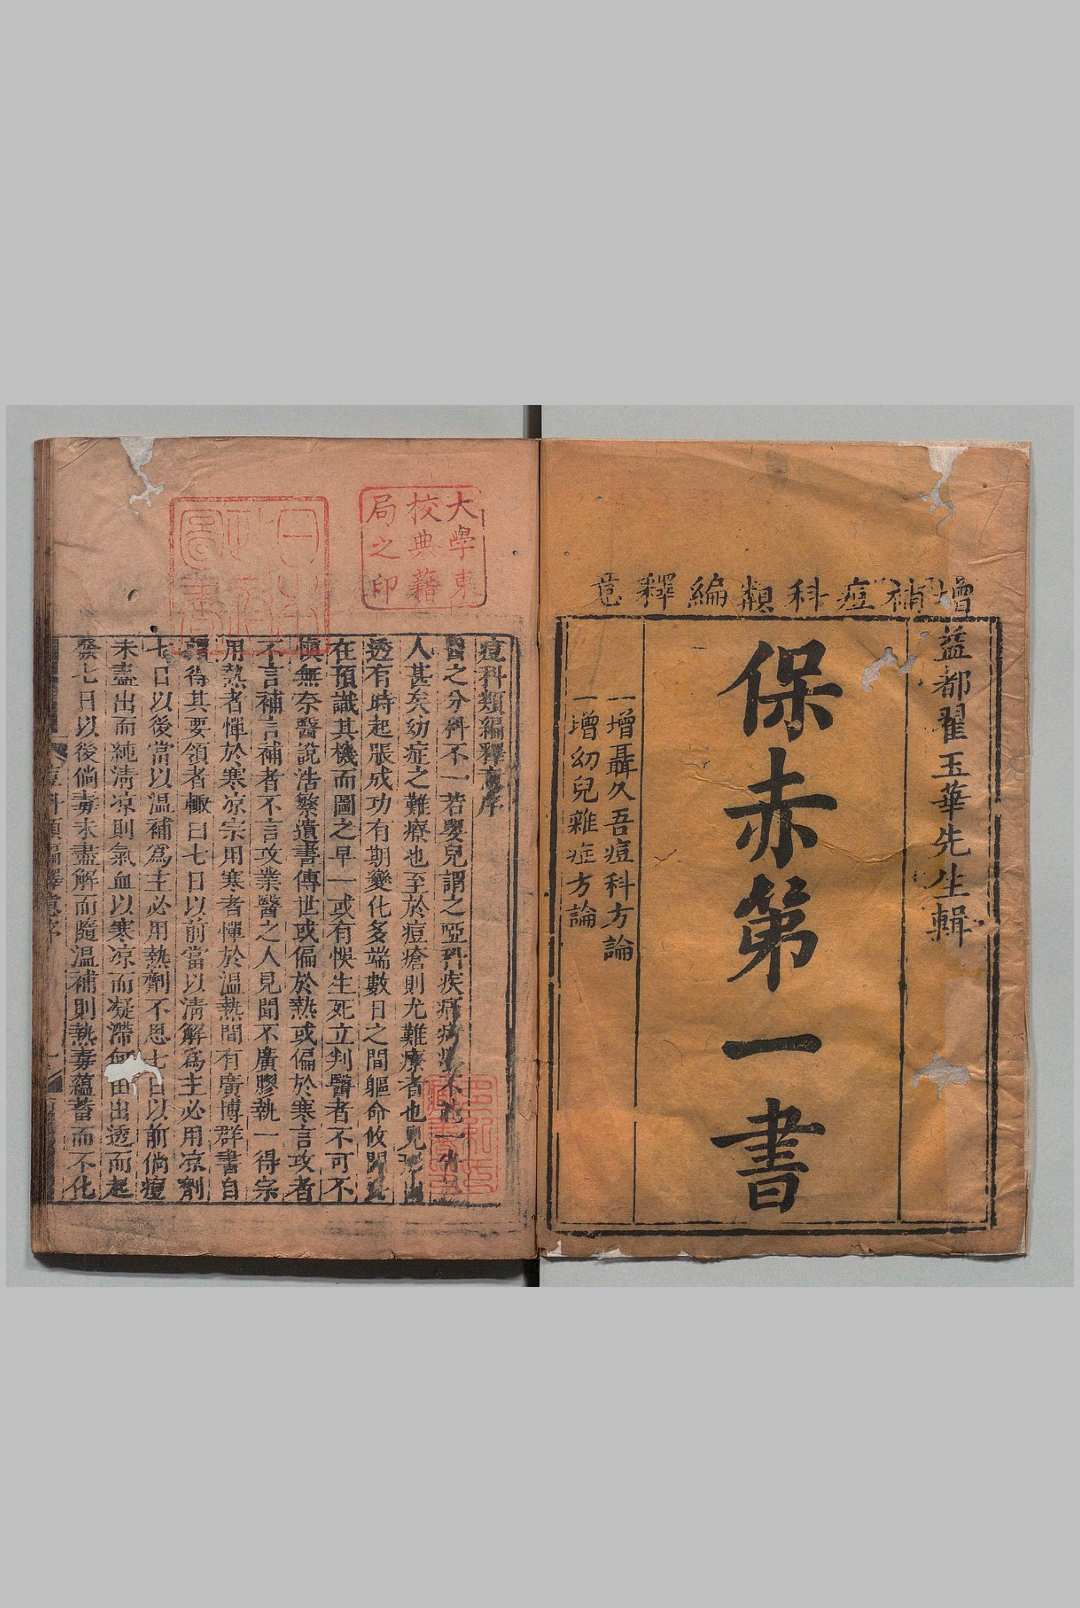 增補痘科類編釋意
益都翟玉華先生輯
保赤第一書
一增聶久吾痘科方論
一增幼兒雜症方論
大學東
校典藉
局之印
痘科類編釋意序
醫之分科不一若嬰兒謂之啞科疾痛
人甚矣幼症之難療也至於痘瘡則尤難療者也
透有時起脹成功有期變化多端數日之間軀命攸関
在預識其機而圖之早一或有悞生死立判醫者不可不
慎無奈醫說浩繁遺書傳世或偏於熱或偏於寒言攻者
不言補言補者不言攻業醫之人見聞不廣膠執一得宗
用熱者憚於寒凉宗用寒者憚於温熱間有廣博群書自
得其要領者輙曰七日以前當以清解爲主必用凉劑
七日以後當以温補爲主必用熱劑不思七日以前倘痘
未盡出而純清凉則氣血以寒凉而凝滯無由出透而起
發七日以後倘毒未盡解而隨温補則熱毒蘊蓄而不化
痘科類編釋意序